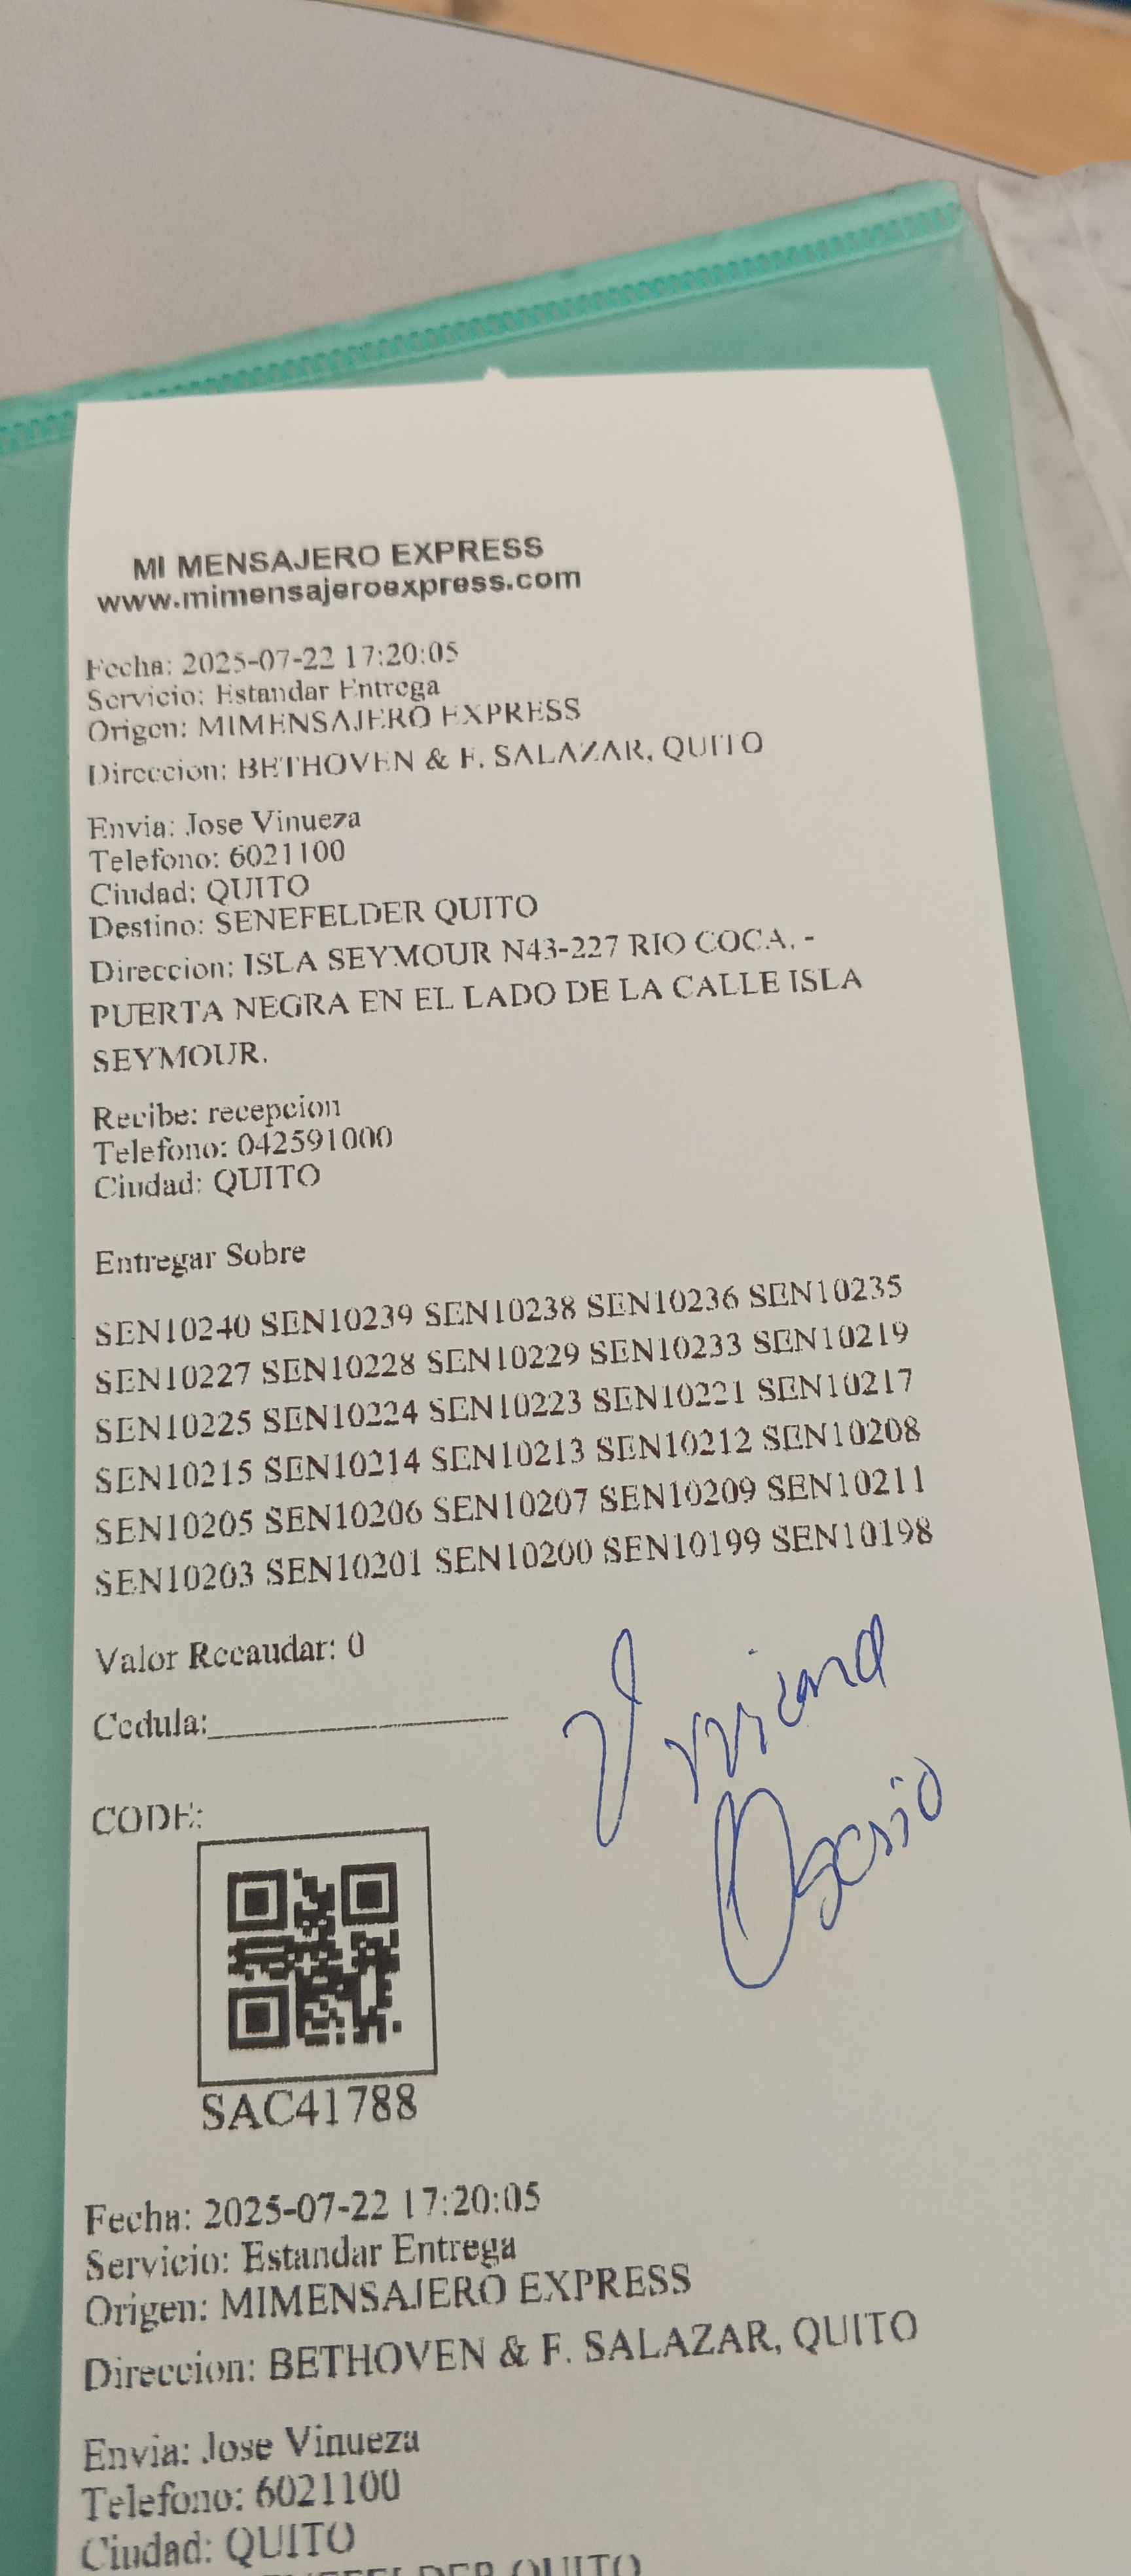 MI MENSAJERO EXPRESS
www.mimensajeroexpress.com
Fecha: 2025-07-22 17:20:05
Servicio: Estandar Entrega
Origen: MIMENSAJERO EXPRESS
Direccion: BETHOVEN & F. SALAZAR, QUITO
Envia: Jose Vinueza
Telefono: 6021100
Ciudad: QUITO
Destino: SENEFELDER QUITO
Direccion: ISLA SEYMOUR N43-227 RIO COCA. -
PUERTA NEGRA EN EL LADO DE LA CALLE ISLA
SEYMOUR.
Recibe: recepcion
Telefono: 042591000
Ciudad: QUITO
Entregar Sobre
SEN10240 SEN10239 SEN10238 SEN10236 SEN10235
SEN10227 SEN10228 SEN10229 SEN10233 SEN10219
SEN10225 SEN10224 SEN10223 SEN10221 SEN10217
SEN10215 SEN10214 SEN10213 SEN10212 SEN10208
SEN10205 SEN10206 SEN10207 SEN10209 SEN10211
SEN10203 SEN10201 SEN10200 SEN10199 SEN10198
Valor Recaudar: 0
Cedula:
Viviana
Osorio
CODE:
SAC41788
Fecha: 2025-07-22 17:20:05
Servicio: Estandar Entrega
Origen: MIMENSAJERO EXPRESS
Direccion: BETHOVEN & F. SALAZAR, QUITO
Envia: Jose Vinueza
Telefono: 6021100
Ciudad: QUITO
QUITO